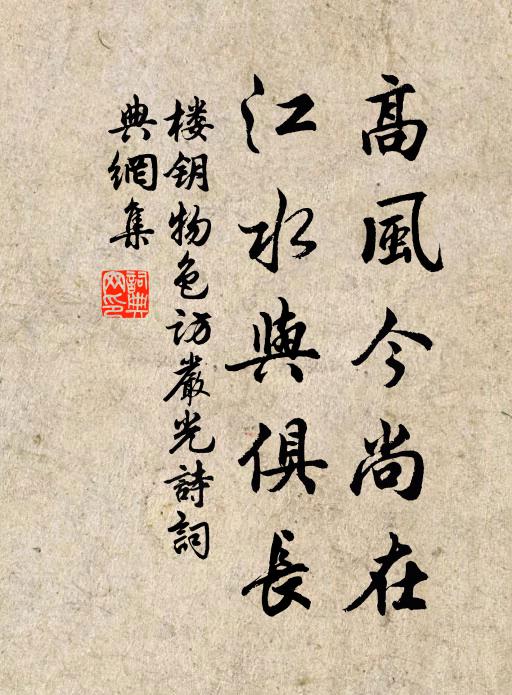 高風今尚在
江水與俱長
楼钥物色访嚴光詩詞
典網集
詞典网印